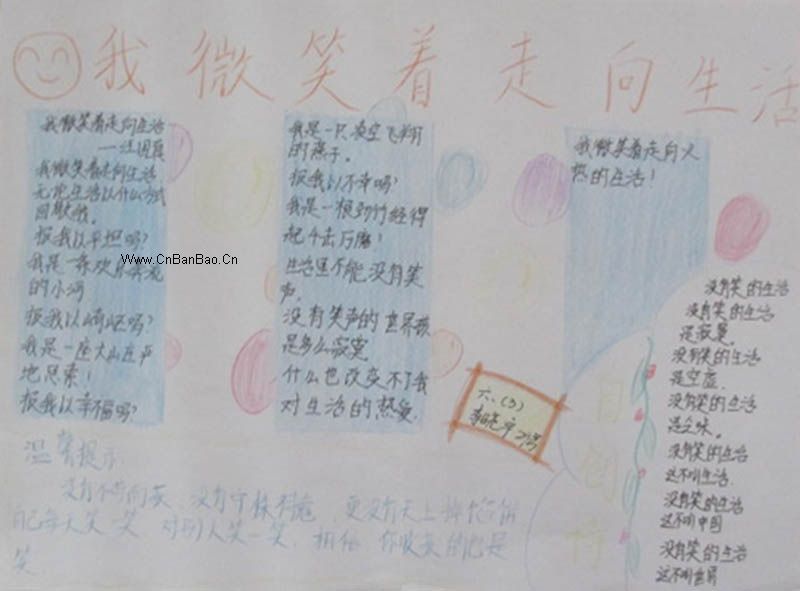 我微笑着走向生活
我微笑着走向生活
——汪国真
我微笑着走向生活
无论生活以什么方式
回敬我。
报我以平坦吗?
我是一条欢乐奔流
的小河
报我以崎岖吗?
我是一座大山庄严
地思索!
报我以幸福吗?
我是一只凌空飞翔
的燕子。
报我以不幸吗?
我是一根劲竹经得
起千击万磨!
生活里不能没有笑
声,
没有笑声的世界该
是多么寂寞
什么也改变不了我
对生活的热爱
我微笑着走向火
热的生活!
Www.CnBanBao.Cn
六、(3)
自创诗
没有笑的生活
没有笑的生活
是寂寞
没有笑的生活
是空虚
没有笑的生活
是乏味
没有笑的生活
这不叫生活
没有笑的生活
这不叫中国
没有笑的生活
这不叫世界
温馨提示
没有不劳而获、没有守株待兔,更没有天上掉馅饼
自己每天笑一笑,对别人笑一笑,相信,你收获的也是
笑